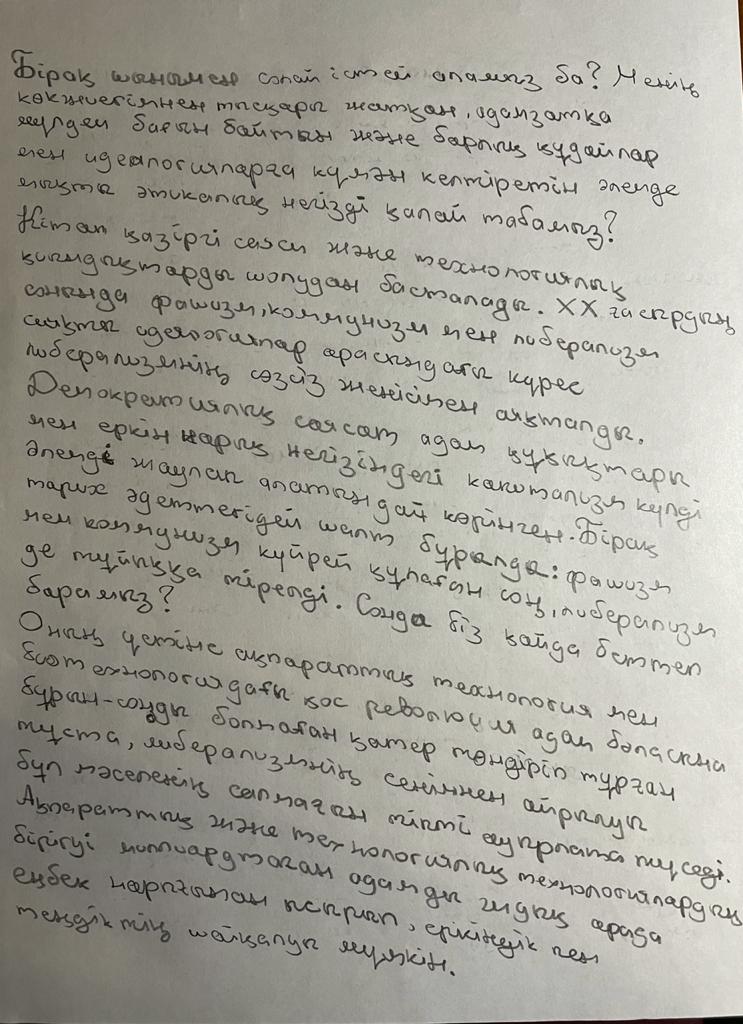 Бірақ шынымен солай істей аламыз ба? Менің
көкжиегімнен тысқары жатқан, адамзатқа
мүлдем бағын байтын және барлық құдайлар
мен идеологияларға күмән келтіретін әлемде
мықты этикалық негізді қалай табамыз?
Кітап қазіргі саяси және технологиялық
қиындықтарды шолудан басталады. ХХ ғасырдың
соңында фашизм, коммунизм мен либерализм
сияқты идеологиялар арасындағы күрес
либерализмнің сөзсіз жеңісімен аяқталды.
Демократиялық саясат, адам құқықтары
мен еркін нарық негізіндегі капитализм күлді
әлемді жаулап алатындай көрінген. Бірақ
тарих әдеттегідей шалт бұрылды: фашизм
мен коммунизм күйреп құлаған соң, либерализм
де тұйыққа тірелді. Сонда біз қайда беттеп
барамыз?
Оның үстіне ақпараттық технология мен
биотехнологиядағы қос революция адам баласына
бұрын-соңды болмаған қатер төндіріп тұрған
тұста, либерализмнің сенімнен айрылуы
бұл мәселенің салмағын тіпті ауырлата түседі.
Ақпараттық және технологиялық технологиялардың
бірігуі миллиардтаған адамды жидық арада
еңбек нарығынан ысырып, еркіндік пен
теңдіктің шайқалуы мүмкін.